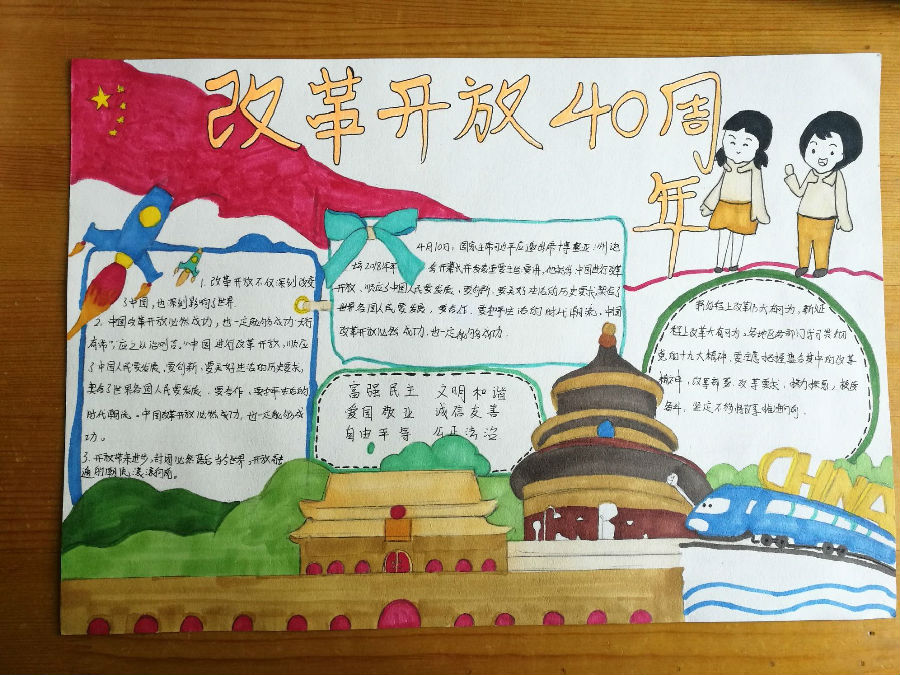 改革开放40周
年
1. 改革开放不仅深刻改变
了中国,也深刻影响了世界
2. 中国改革开放必然成功,也一定能够成功"大行
有市",应之以治则吉。"中国进行改革开放,顺应
了中国人民要发展、要创新、要美好生活的历史要求,
契合了世界各国人民要发展、要合作、要和平生活的
时代潮流。中国改革开放必然成功,也一定能够成
功。
3. 开放带来进步,封闭必然落后 当今世界,开放融
通的潮流滚滚向前。
4月10日,国家主席习平应邀出席博鳌亚洲论
坛2018年年会开幕式并发表重要主旨演讲,他指出 中国进行改革
开放,顺应了中国人民要发展、要创新、要美好生活的历史要求,契合了
世界各国人民要发展、要合作、要和平生活的时代潮流。中国
改革开放必然成功,也一定能够成功.
富强民主 文明和谐
爱国敬业 诚信友善
自由平等 公正法治
新征程上改革仍大有可为,新征
程上改革大有可为。各地区各部门学习贯彻
党的十九大精神,
改革
奋斗,坚定不移将改革推向前。
CHINA